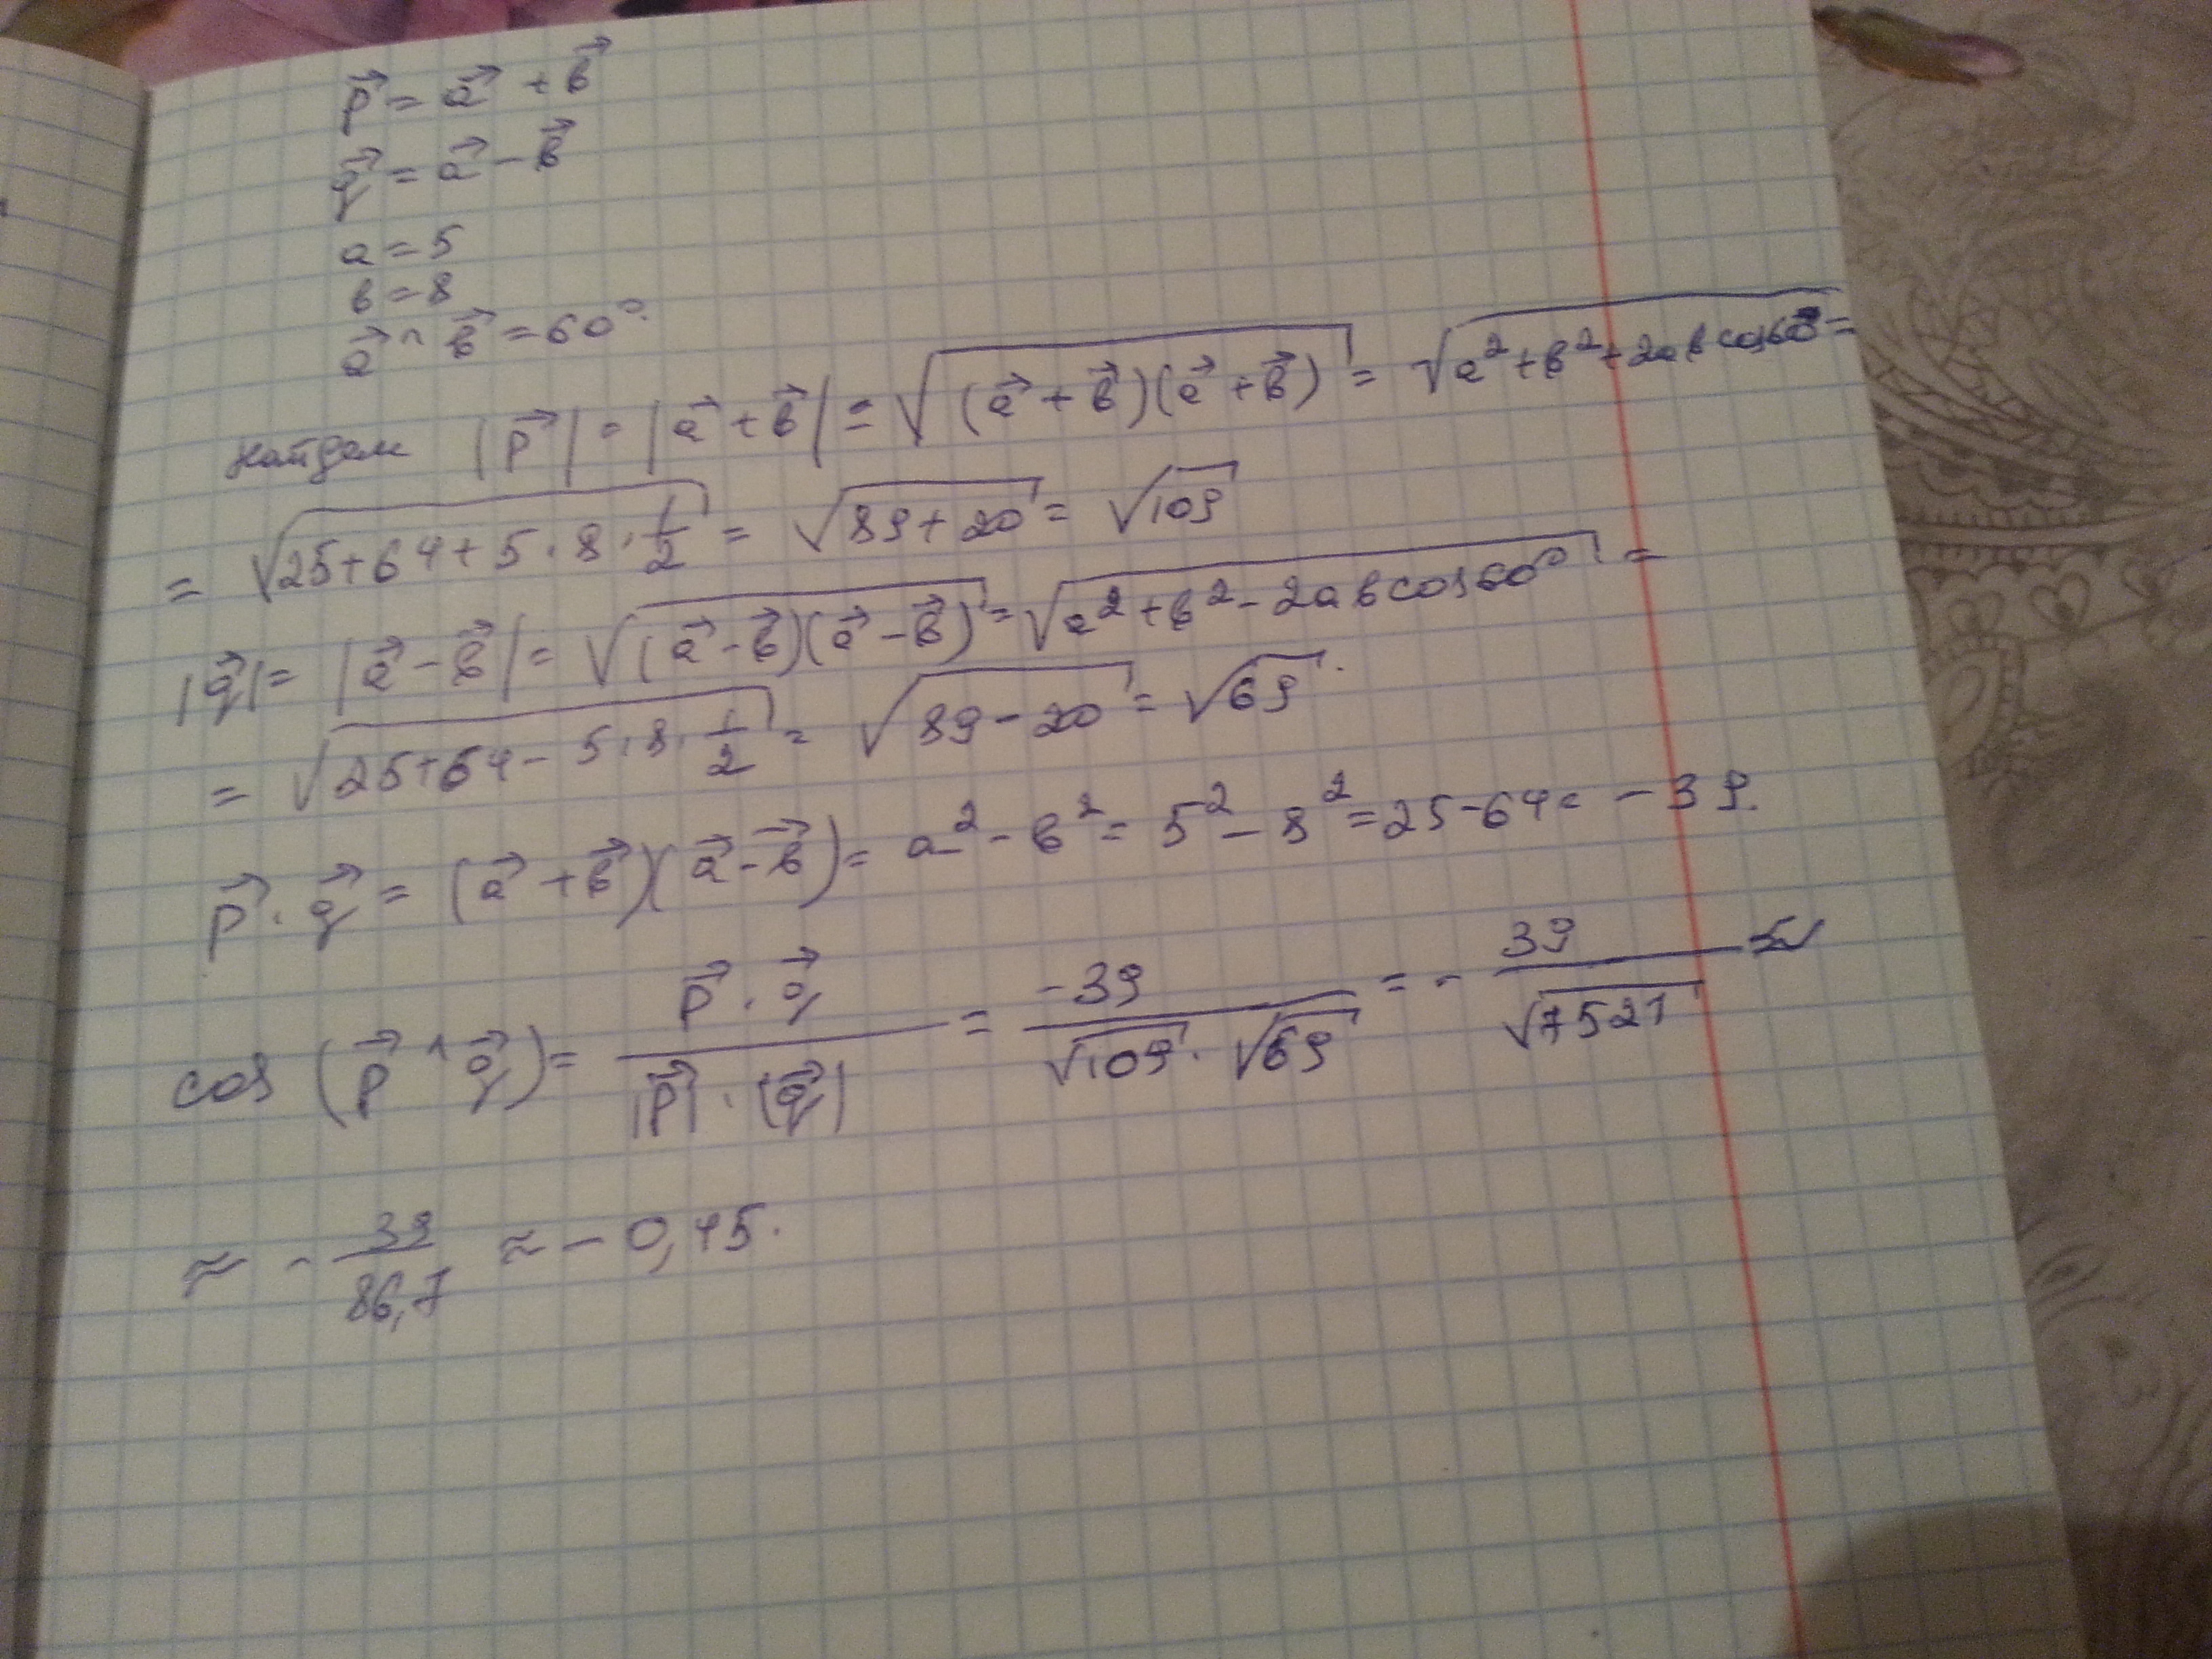 p⃗ = a⃗ + в⃗
q⃗ = a⃗ - в⃗
a = 5
в = 8
a⃗ ^ в⃗ = 60°.
найдем |p⃗| = |a⃗ + в⃗| = √((a⃗ + в⃗)(a⃗ + в⃗)) = √(a² + в² + 2aв cos60°) =
= √(25+64+5·8·1/2) = √(89+20) = √109
|q⃗| = |a⃗ - в⃗| = √((a⃗ - в⃗)(a⃗ - в⃗)) = √(a² + в² - 2aв cos60°) =
= √(25+64-5·8·1/2) = √(89-20) = √69.
p⃗ · q⃗ = (a⃗ + в⃗)(a⃗ - в⃗) = a² - в² = 5² - 8² = 25-64 = -39.
cos (p⃗ ^ q⃗) = (p⃗ · q⃗)/(|p⃗| · |q⃗|) = -39/(√109 · √69) = - 39/√7521 ≈
≈ - 39/86,7 ≈ - 0,45.